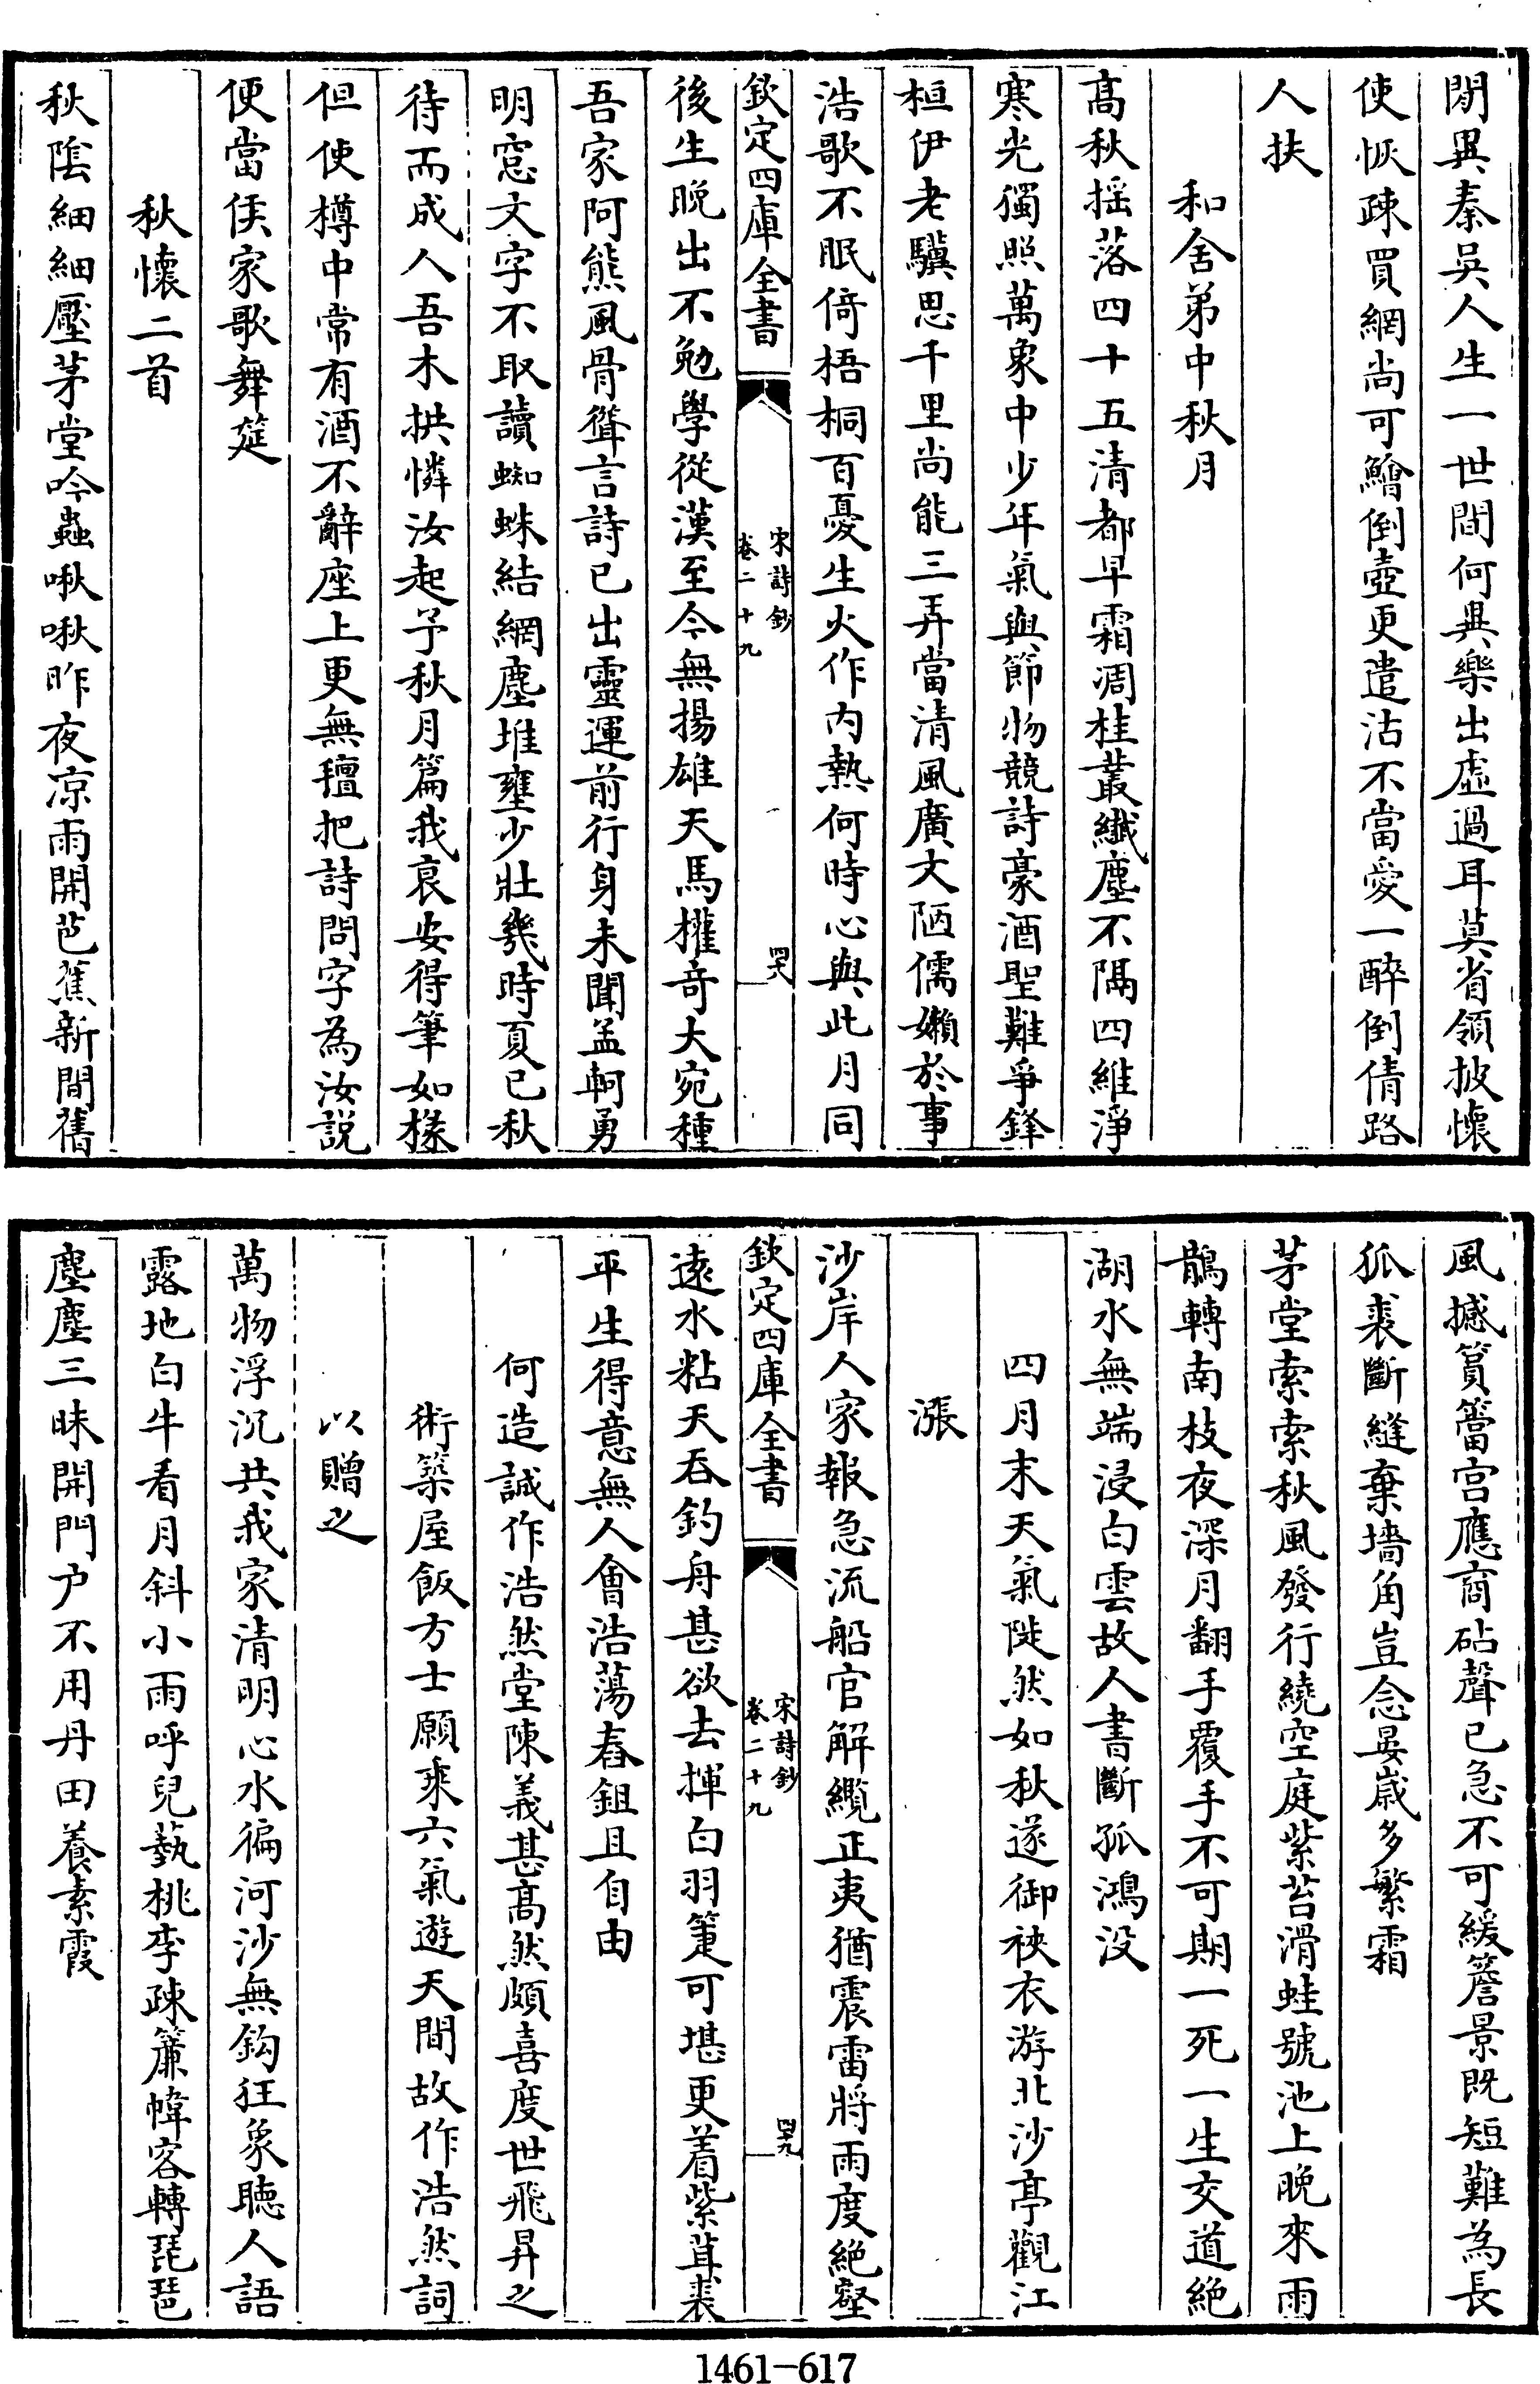 閒異秦吳人生一世間何異樂出虛過耳莫省領披懷
使恢疎買網尚可鱠倒壺更遣沽不當愛一醉倒倩路
人扶
和舍弟中秋月
高秋揺落四十五清都早霜凋桂叢纎塵不隔四維淨
寒光獨照萬象中少年氣與節物競詩豪酒聖難爭鋒
桓伊老驥思千里尚能三弄當清風廣文陋儒嬾於事
浩歌不眠倚梧桐百憂生火作内熱何時心與此月同
欽定四庫全書
宋詩鈔
卷二十九
四八
後生晚出不勉學從漢至今無揚雄天馬權奇大宛種
吾家阿熊風骨聳言詩已出靈運前行身未聞孟軻勇
明窓文字不取讀蜘蛛結網塵堆壅少壯幾時夏已秋
待而成人吾木拱憐汝起予秋月篇我衰安得筆如椽
但使樽中常有酒不辭座上更無氊把詩問字為汝説
便當侯家歌舞筵
秋懷二首
秋隂細細壓茅堂吟蟲啾啾昨夜凉雨開芭蕉新間舊
風撼篔簹宫應商砧聲已急不可緩簷景既短難為長
狐裘斷縫棄墻角豈念晏歲多繁霜
茅堂索索秋風發行繞空庭紫苔滑蛙號池上晚來雨
鵲轉南枝夜深月翻手覆手不可期一死一生交道絕
湖水無端浸白雲故人書斷孤鴻没
四月末天氣陡然如秋遂御裌衣游北沙亭觀江
漲
沙岸人家報急流船官解纜正夷猶震雷將雨度絕壑
欽定四庫全書
宋詩鈔
卷二十九
四九
遠水粘天吞釣舟甚欲去揮白羽箑可堪更着紫茸裘
平生得意無人會浩蕩春鉏且自由
何造誠作浩然堂陳義甚髙然頗喜度世飛昇之
術築屋飯方士願乘六氣遊天間故作浩然詞
以贈之
萬物浮沉共我家清明心水徧河沙無鈎狂象聽人語
露地白牛看月斜小雨呼兒藝桃李疎簾幃客轉琵琶
塵塵三昧開門戶不用丹田養素霞
1461—617